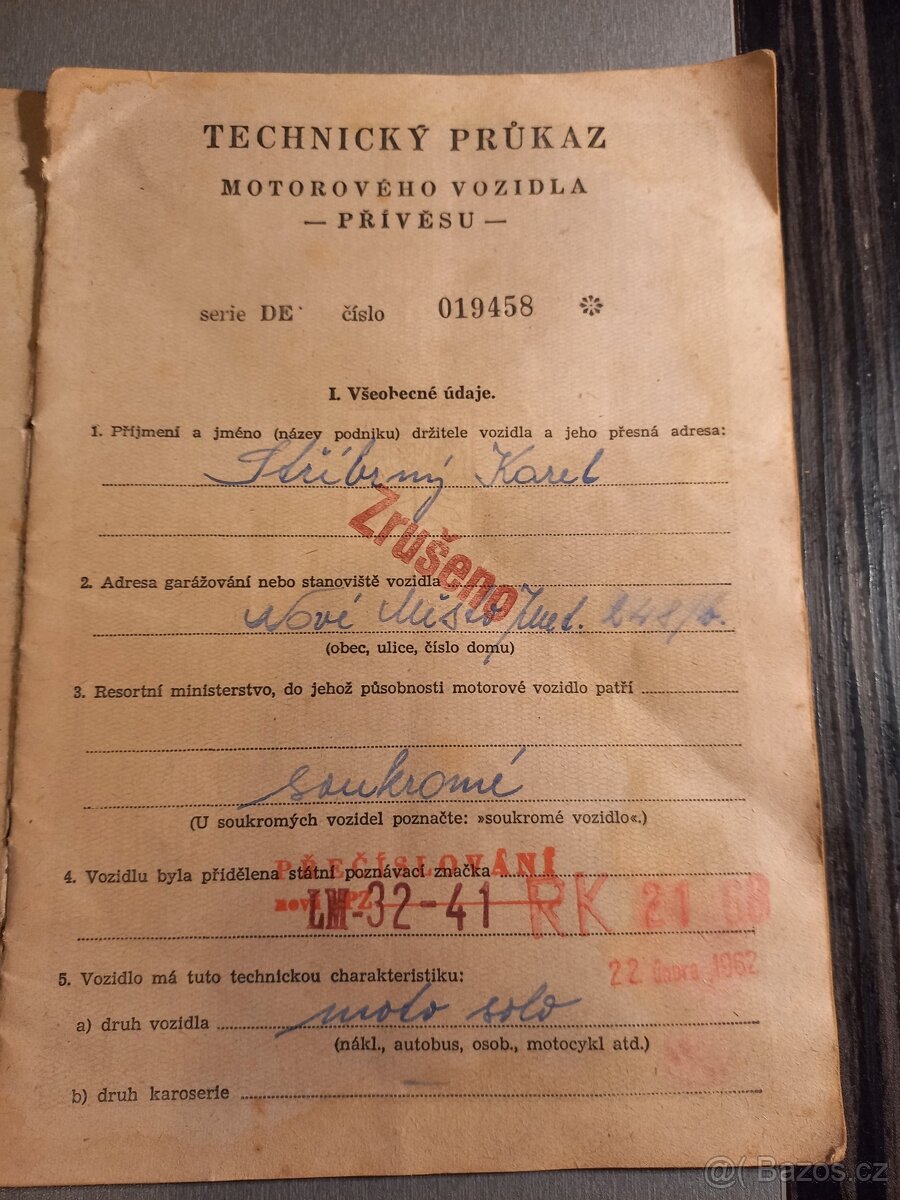 TECHNICKÝ PRŮKAZ
MOTOROVÉHO VOZIDLA
— PŘÍVĚSU —
serie DE číslo 019458
I. Všeobecné údaje.
1. Příjmení a jméno (název podniku) držitele vozidla a jeho přesná adresa:
Stříbrný Karel
Zrušeno
2. Adresa garážování nebo stanoviště vozidla
Nové Město
(obec, ulice, číslo domu)
3. Resortní ministerstvo, do jehož působnosti motorové vozidlo patří
soukromé
(U soukromých vozidel poznačte: »soukromé vozidlo«.)
PŘEČÍSLOVÁNÍ
4. Vozidlu byla přidělena státní poznávací značka
nová
LM-32-41 RK 21
22 února 1962
5. Vozidlo má tuto technickou charakteristiku:
a) druh vozidla moto solo
(nákl., autobus, osob., motocykl atd.)
b) druh karoserie
@( Bazos.cz